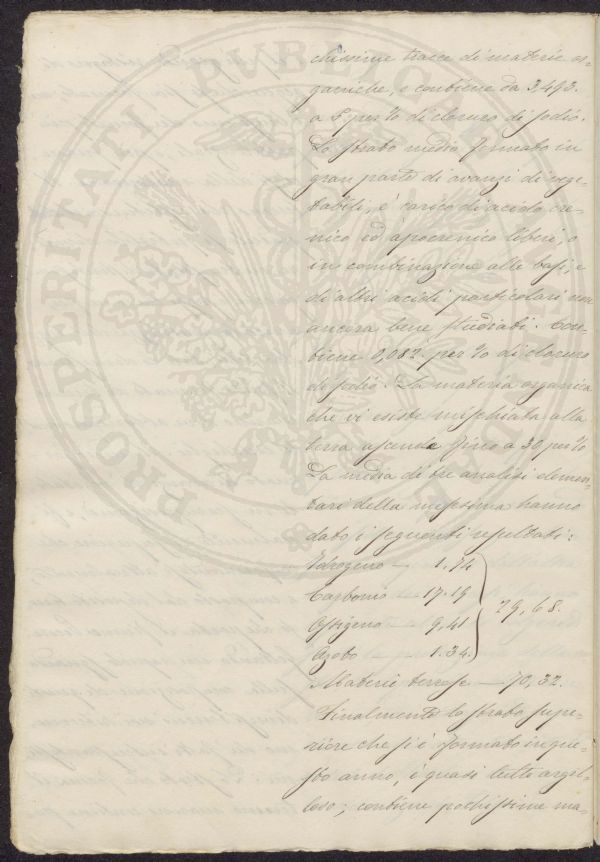 chissime tracce di materie or-
ganiche, e contiene da 3,493.
a 5 per % di cloruro di sodio.
Lo strato medio formato in
gran parte di avanzi di vege-
tabili, è carico di acido cre-
nico ed apocrenico liberi, o
in combinazione alle basi, e
di altri acidi particolari non
ancora bene studiati. Con-
tiene 0,082 per % di cloruro
di sodio. La materia organica
che vi esiste mischiata alla
terra ascende fino a 30 per %
La media di tre analisi elemen-
tari della medesima hanno
dato i seguenti resultati:
Idrogeno — 1.74
Carbonio — 17.19
Ossigeno — 9,41
Azoto 1.34.
29,68.
Materie terrose — 70,32.
Finalmente lo strato supe-
riore che si è formato in que-
sto anno, è quasi tutto argil-
loso; contiene pochissime ma-
PROSPERITATI PUBLICAE